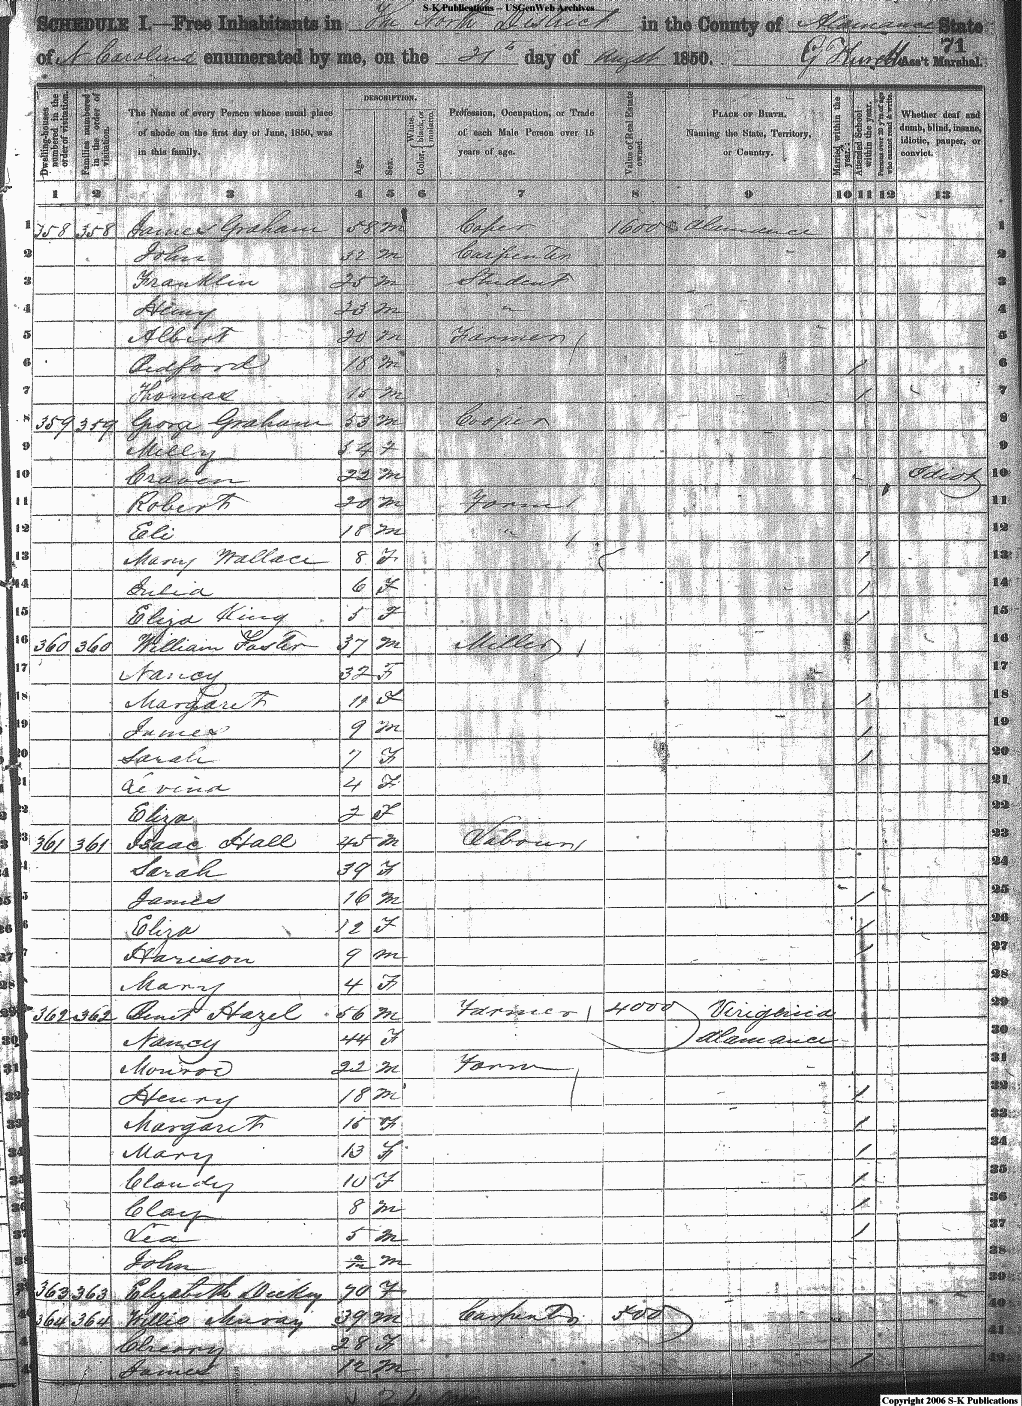 S-K Publications – USGenWeb Archives
SCHEDULE I.—Free Inhabitants in The North District in the County of Alamance State
of N Carolina enumerated by me, on the 21th day of August 1850. Ass't Marshal.
71
Dwelling-houses numbered in the order of visitation.
Families numbered in the order of visitation.
The Name of every Person whose usual place of abode on the first day of June, 1850, was in this family.
DESCRIPTION.
Age.
Sex.
Color, White, black, or mulatto.
Profession, Occupation, or Trade of each Male Person over 15 years of age.
Value of Real Estate owned.
PLACE OF BIRTH. Naming the State, Territory, or Country.
Married within the year.
Attended School within the year.
Persons over 20 y'rs of age who cannot read & write.
Whether deaf and dumb, blind, insane, idiotic, pauper, or convict.
1 2 3 4 5 6 7 8 9 10 11 12 13
1 358 358 James Graham 58 m Coper 1600 Alamance 1
2 John 32 m Carpenter 2
3 Franklin 25 m Student 3
4 Henry 23 m " 4
5 Albert 20 m Farmer / 5
6 Bedford 18 m 1 6
7 Thomas 15 m 1 7
8 359 359 Georg Graham 53 m Cooper 8
9 Milly 54 F 9
10 Craven 22 m Idiot 10
11 Robert 20 m Farm / 11
12 Eli 18 m " / 12
13 Mary Wallace 8 F 1 13
14 Julia 6 F 1 14
15 Eliza King 5 F 1 15
16 360 360 William Foster 37 m Miller / 16
17 Nancy 32 F 17
18 Margaret 11 F 1 18
19 James 9 m 1 19
20 Sarah 7 F 1 20
21 Levina 4 F 21
22 Eliza 2 F 22
23 361 361 Isaac Hall 45 m Labour / 23
24 Sarah 39 F 24
25 James 16 m 1 25
26 Eliza 12 F 1 26
27 Harison 9 m 1 27
28 Mary 4 F 28
29 362 362 Hazel 56 m Farmer / 4000 Viriginia 29
30 Nancy 44 F Alamance 30
31 Monroe 22 m Farm / 31
32 Henry 18 m 1 32
33 Margaret 15 F 1 33
34 Mary 13 F 1 34
35 Claudy 10 F 1 35
36 Clay 8 m 1 36
37 Lea 5 m 1 37
38 John m 38
39 363 363 Elizabeth Dickey 70 F 39
40 364 364 Willis Muray 39 m Carpenter 500 40
41 28 F 41
42 James 12 m 1 42
Copyright 2006 S-K Publications